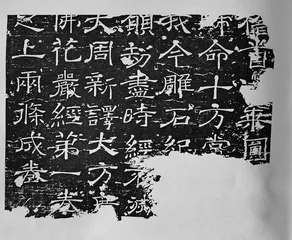 稽首乘圓
歸命十方常
我今雕石紀
願劫盡時經不滅
大周新譯大方廣
佛花嚴經第一卷
之上兩條成卷